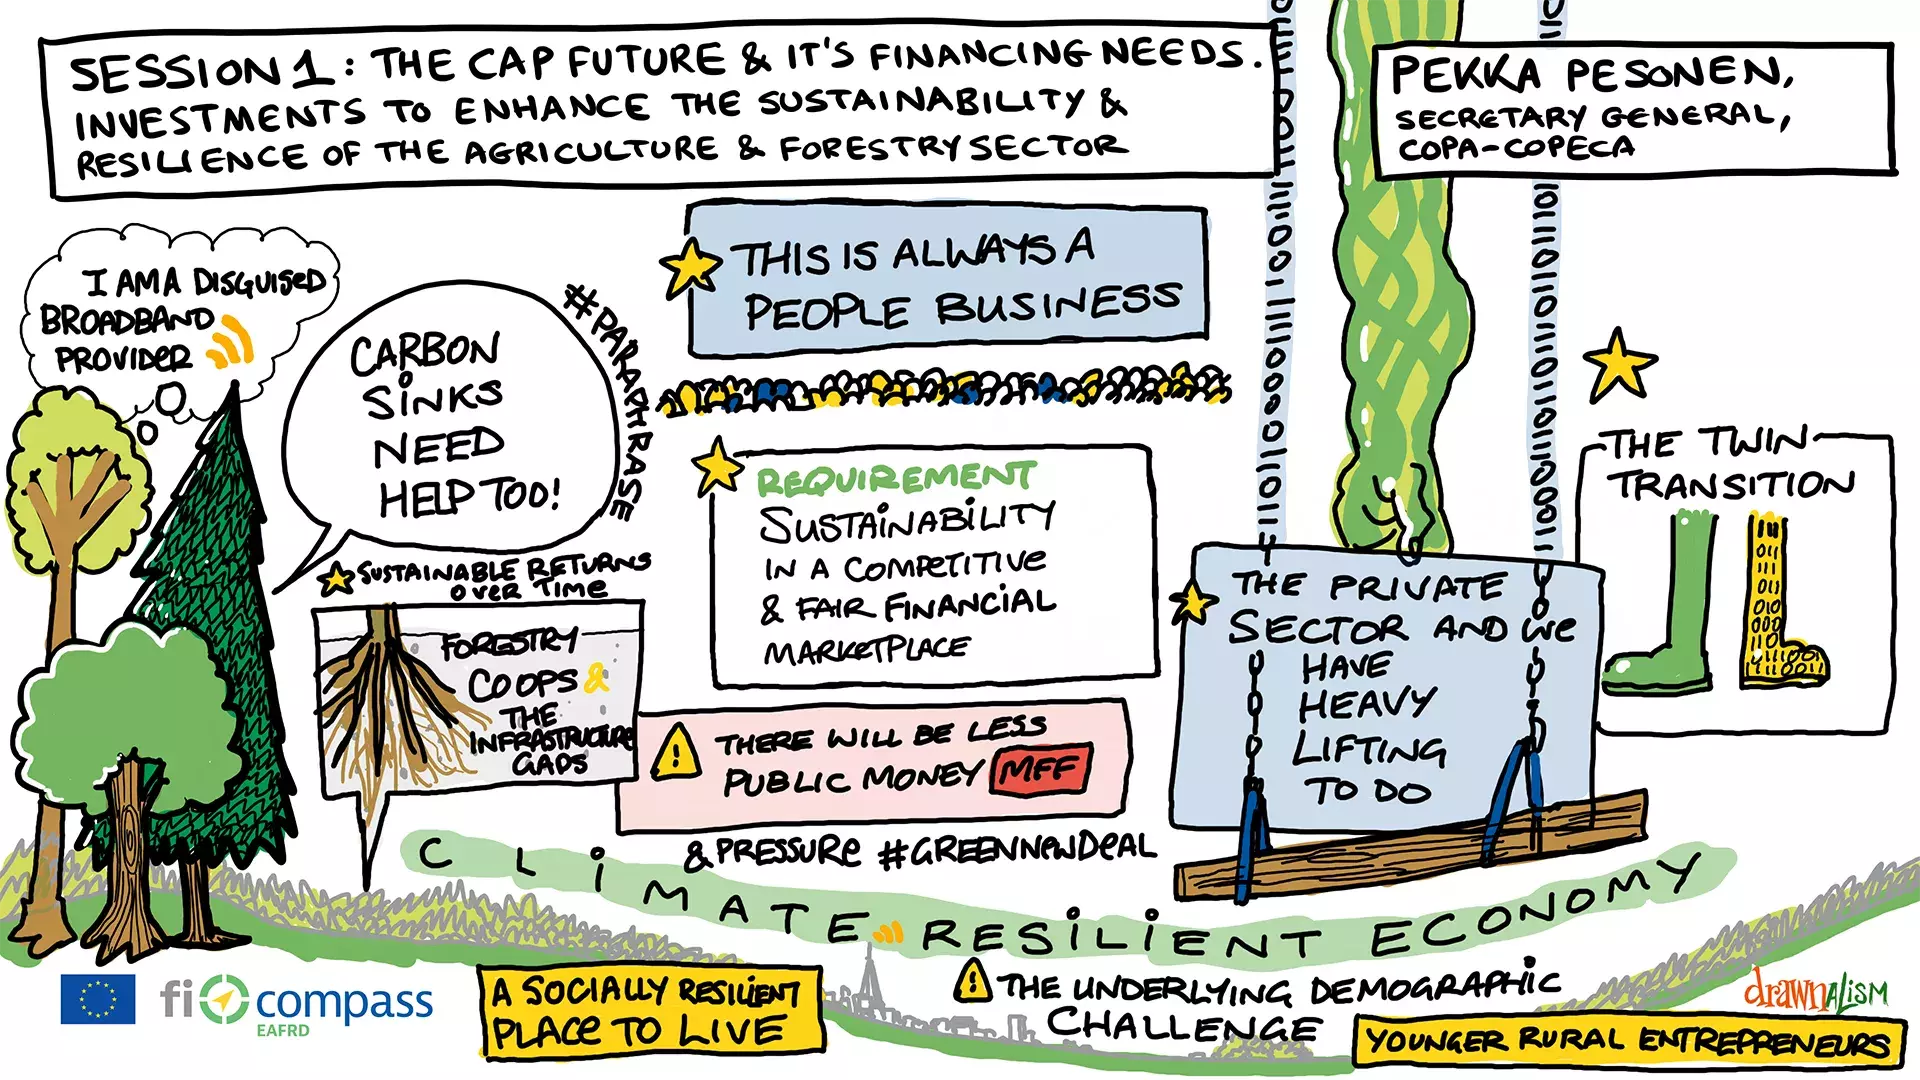 SESSION 1: THE CAP FUTURE & IT'S FINANCING NEEDS.
INVESTMENTS TO ENHANCE THE SUSTAINABILITY &
RESILIENCE OF THE AGRICULTURE & FORESTRY SECTOR
PEKKA PESONEN,
SECRETARY GENERAL,
COPA-COPECA
I AM A DISGUISED
BROADBAND
PROVIDER
CARBON
SINKS
NEED
HELP TOO!
#PARAPHRASE
THIS IS ALWAYS A
PEOPLE BUSINESS
REQUIREMENT
SUSTAINABILITY
IN A COMPETITIVE
& FAIR FINANCIAL
MARKETPLACE
SUSTAINABLE RETURNS
OVER TIME
FORESTRY
COOPS &
THE
INFRASTRUCTURE
GAPS
THERE WILL BE LESS
PUBLIC MONEY MFF
& PRESSURE #GREENNEWDEAL
THE PRIVATE
SECTOR AND WE
HAVE
HEAVY
LIFTING
TO DO
THE TWIN
TRANSITION
CLIMATE RESILIENT ECONOMY
A SOCIALLY RESILIENT
PLACE TO LIVE
THE UNDERLYING DEMOGRAPHIC
CHALLENGE
YOUNGER RURAL ENTREPRENEURS
fi compass
EAFRD
drawnalism